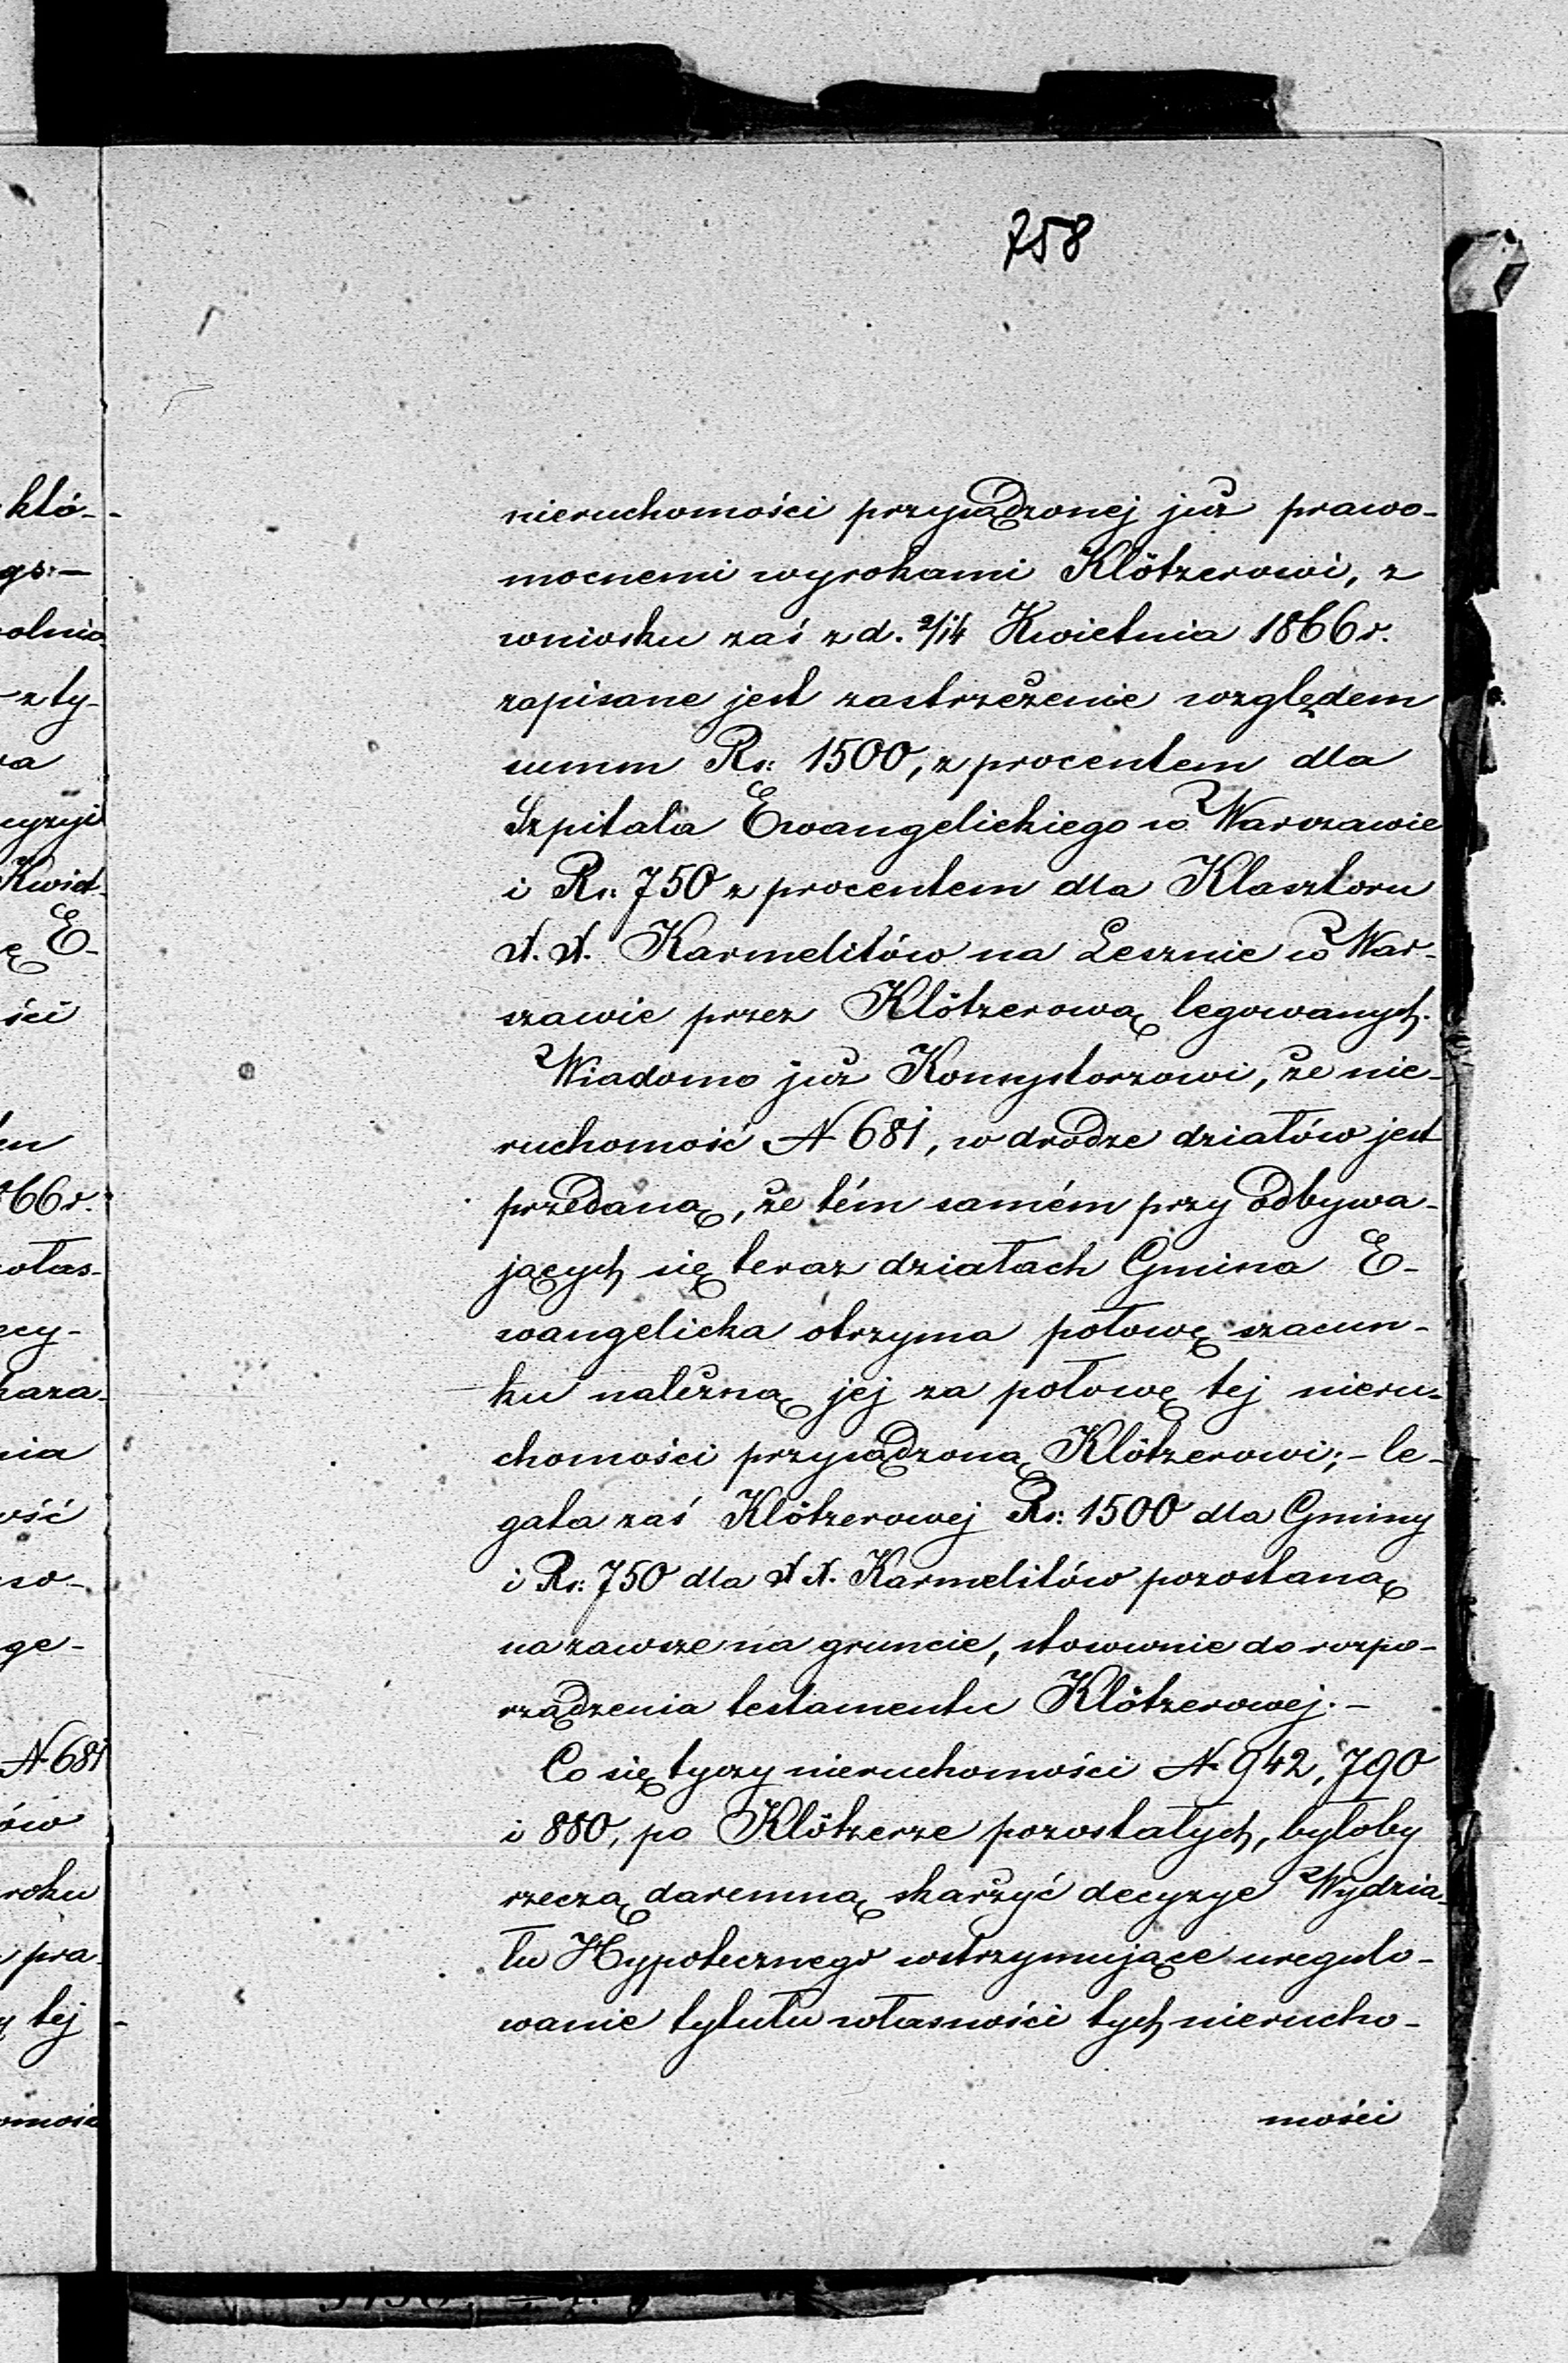 758
nieruchomości przysądzonej już prawo-
mocnemi wyrokami Klötzerowi, z
wniosku zaś z d. 2/14 Kwietnia 1866 r.
zapisane jest zastrzeżenie względem
summ Rs: 1500, z procentem dla
Szpitala Ewangelickiego w Warszawie
i Rs: 750 z procentem dla Klasztoru
X. X. Karmelitów na Lesznie w War-
szawie przez Klötzerową legowanych.
Wiadomo już Konsystorzowi, że nie-
ruchomość N 681, w drodze działów jest
przedaną, że tém samém przy odbywa-
jących się teraz działach Gmina E-
wangelicka otrzyma połowę szacun-
ku należną jej za połowę tej nieru-
chomości przysądzoną Klötzerowi; - le-
gata zaś Klötzerowej Rs: 1500 dla Gminy
i Rs: 750 dla X X. Karmelitów pozostaną
na zawsze na gruncie, stosownie do rozpo-
rządzenia testamentu Klötzerowej. -
Co się tyczy nieruchomości N. 942, 790
i 880, po Klötzerze pozostałych, byłoby
rzeczą daremną skarżyć decyzye Wydzia-
łu Hypotecznego wstrzymujące uregulo-
wanie tytułu własności tych nierucho-
mości
któ-
gs: -
olnia
- z ty-
a
cyzyi
Kwiet-
ę E-
ści
866 r.
ołas-
ecy-
kaza-
nia
ość
so-
ge-
N 681
ów
roku
pra-
tej
omość